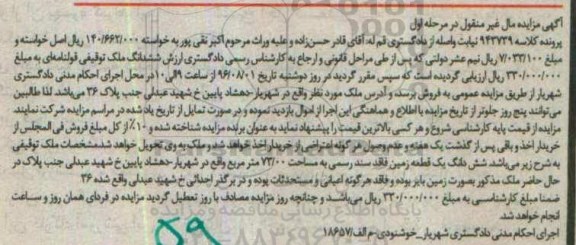 آگهی مزایده مال غیر منقول در مرحله اول
پرونده کلاسه ۹۴۳۷۳۹ نیابت واصله از دادگستری قم له: آقای قادر حسن‌زاده و علیه وراث مرحوم اکبر نقی پور به خواسته ۱۴۰/۶۶۲/۰۰۰ ریال اصل خواسته و
۷/۰۳۳/۱۰۰ ریال نیم عشر دولتی که پس از طی مراحل قانونی و ارجاع به کارشناس رسمی دادگستری ارزش ششدانگ ملک توقیفی قولنامه‌ای به مبلغ
۳۳۰/۰۰۰/۰۰۰ ریال ارزیابی گردیده است که سپس مقرر گردید در روز دوشنبه تاریخ ۹۶/۰۸/۰۱ از ساعت ۹الی۱۰ در محل اجرای احکام مدنی دادگستری
شهریار از طریق مزایده عمومی به فروش برسد. و آدرس ملک مورد نظر واقع در شهریار-دهشاد پایین خ شهید عبدلی جنب پلاک ۳۶ می‌باشد لذا طالبین
می‌توانند پنج روز جلوتر از تاریخ مزایده با اطلاع و هماهنگی این اجرا از اموال بازدید نموده و در صورت تمایل از تاریخ یاد شده در مراسم مزایده شرکت نمایند.
مزایده از قیمت پایه کارشناسی شروع و هر کسی بالاترین قیمت را پیشنهاد نماید به عنوان برنده مزایده شناخته شده و ۱۰٪ از کل مبلغ فروش فی المجلس از
خریدار اخذ و باقی پس از گذشت یک هفته و عدم وصول هر گونه اعتراضی از خریدار اخذ خواهد شد و ملک به وی تحویل خواهد شد مشخصات ملک توقیفی
به شرح زیر می‌باشد شش دانگ یک قطعه زمین فاقد سند رسمی به مساحت ۷۳/۰۰ متر مربع واقع در شهریار-دهشاد پایین خ شهید عبدلی جنب پلاک در
حال حاضر ملک مذکور بصورت زمین بایر بوده و فاقد هر گونه اعیانی و مستحدثات بوده و در بر گذر احداثی خ شهید عبدلی واقع شده ۳۶
ضمنا مبلغ کارشناسی به مبلغ ۳۳۰/۰۰۰/۰۰۰ ریال می‌باشد و چنانچه روز مزایده مصادف با روز تعطیل گردید مزایده در فردای همان روز و ساعت
انجام خواهد شد.
اجرای احکام مدنی دادگستری شهریار_خوشنودی-م الف/۱۸۶۵۷
۵۹